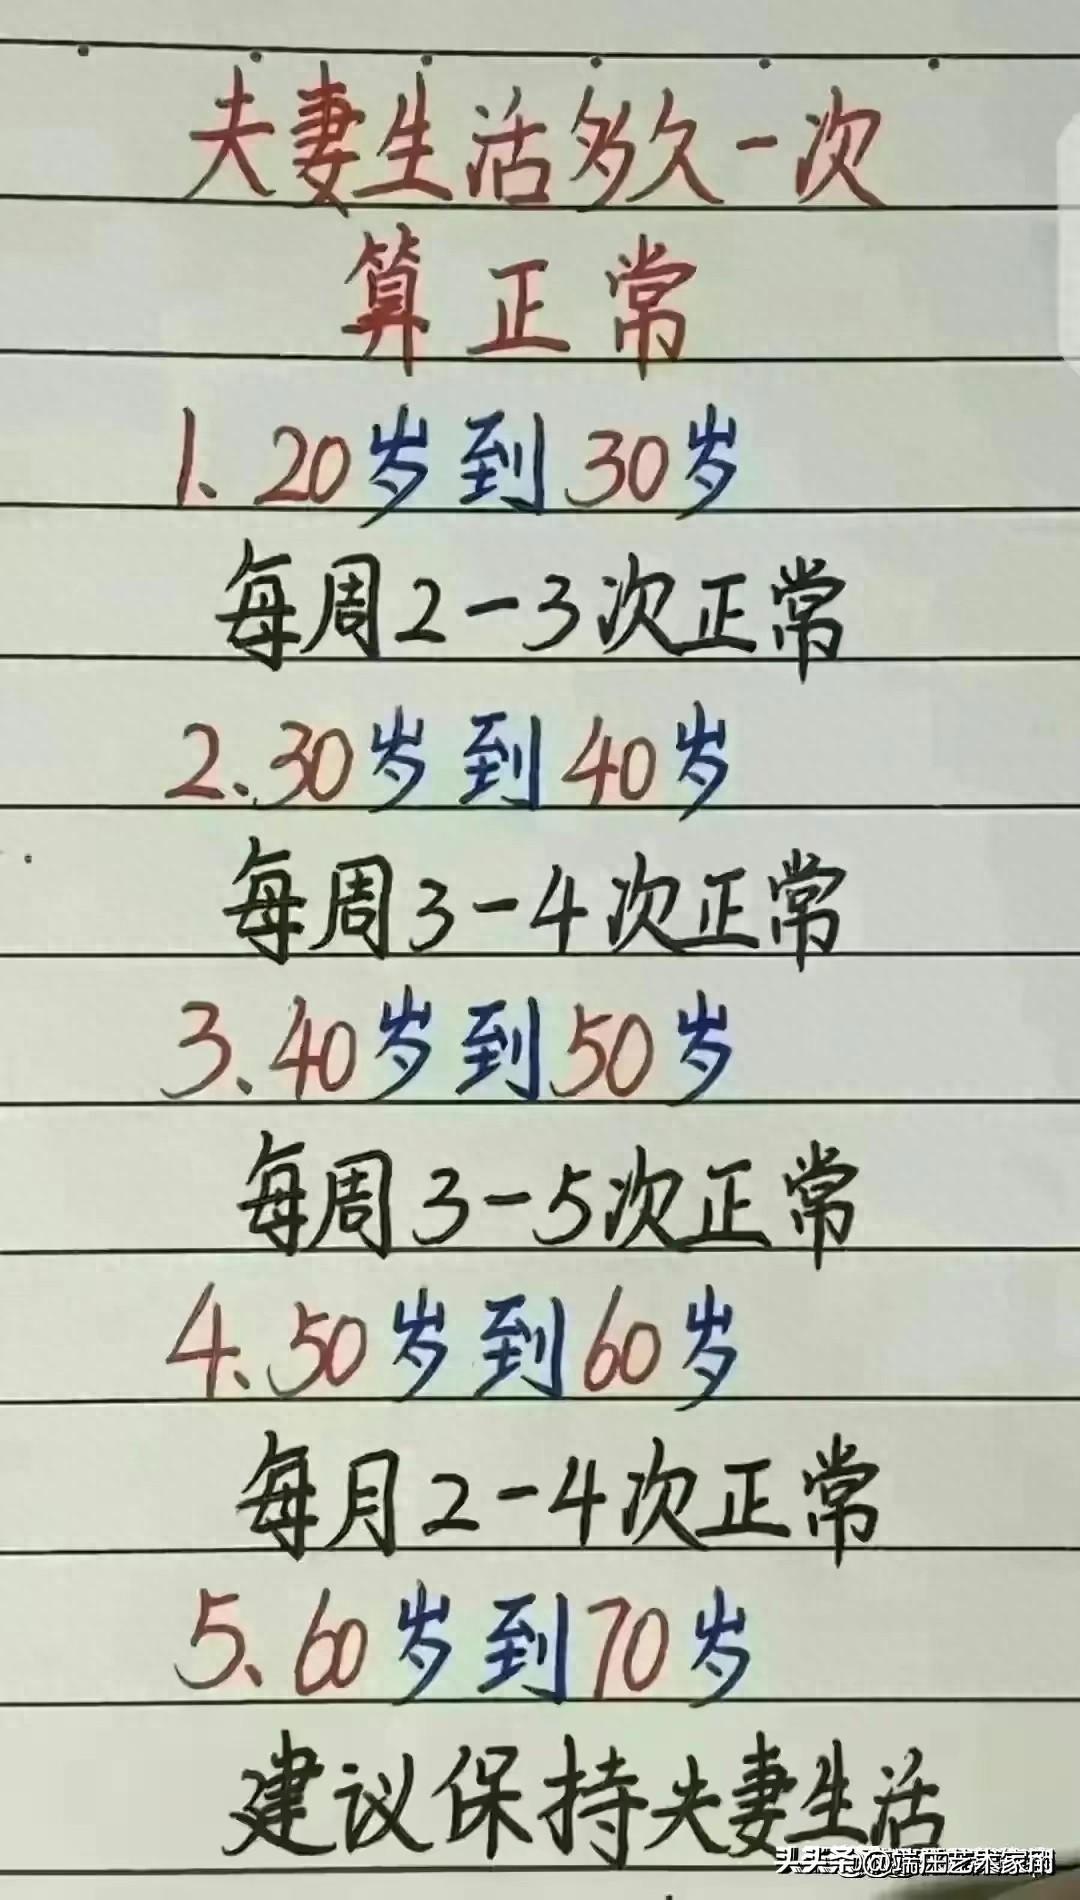 夫妻生活多久一次
算正常
1、20岁到30岁
每周2-3次正常
2、30岁到40岁
每周3-4次正常
3、40岁到50岁
每周3-5次正常
4、50岁到60岁
每月2-4次正常
5、60岁到70岁
建议保持夫妻生活
头条@端庄艺术家